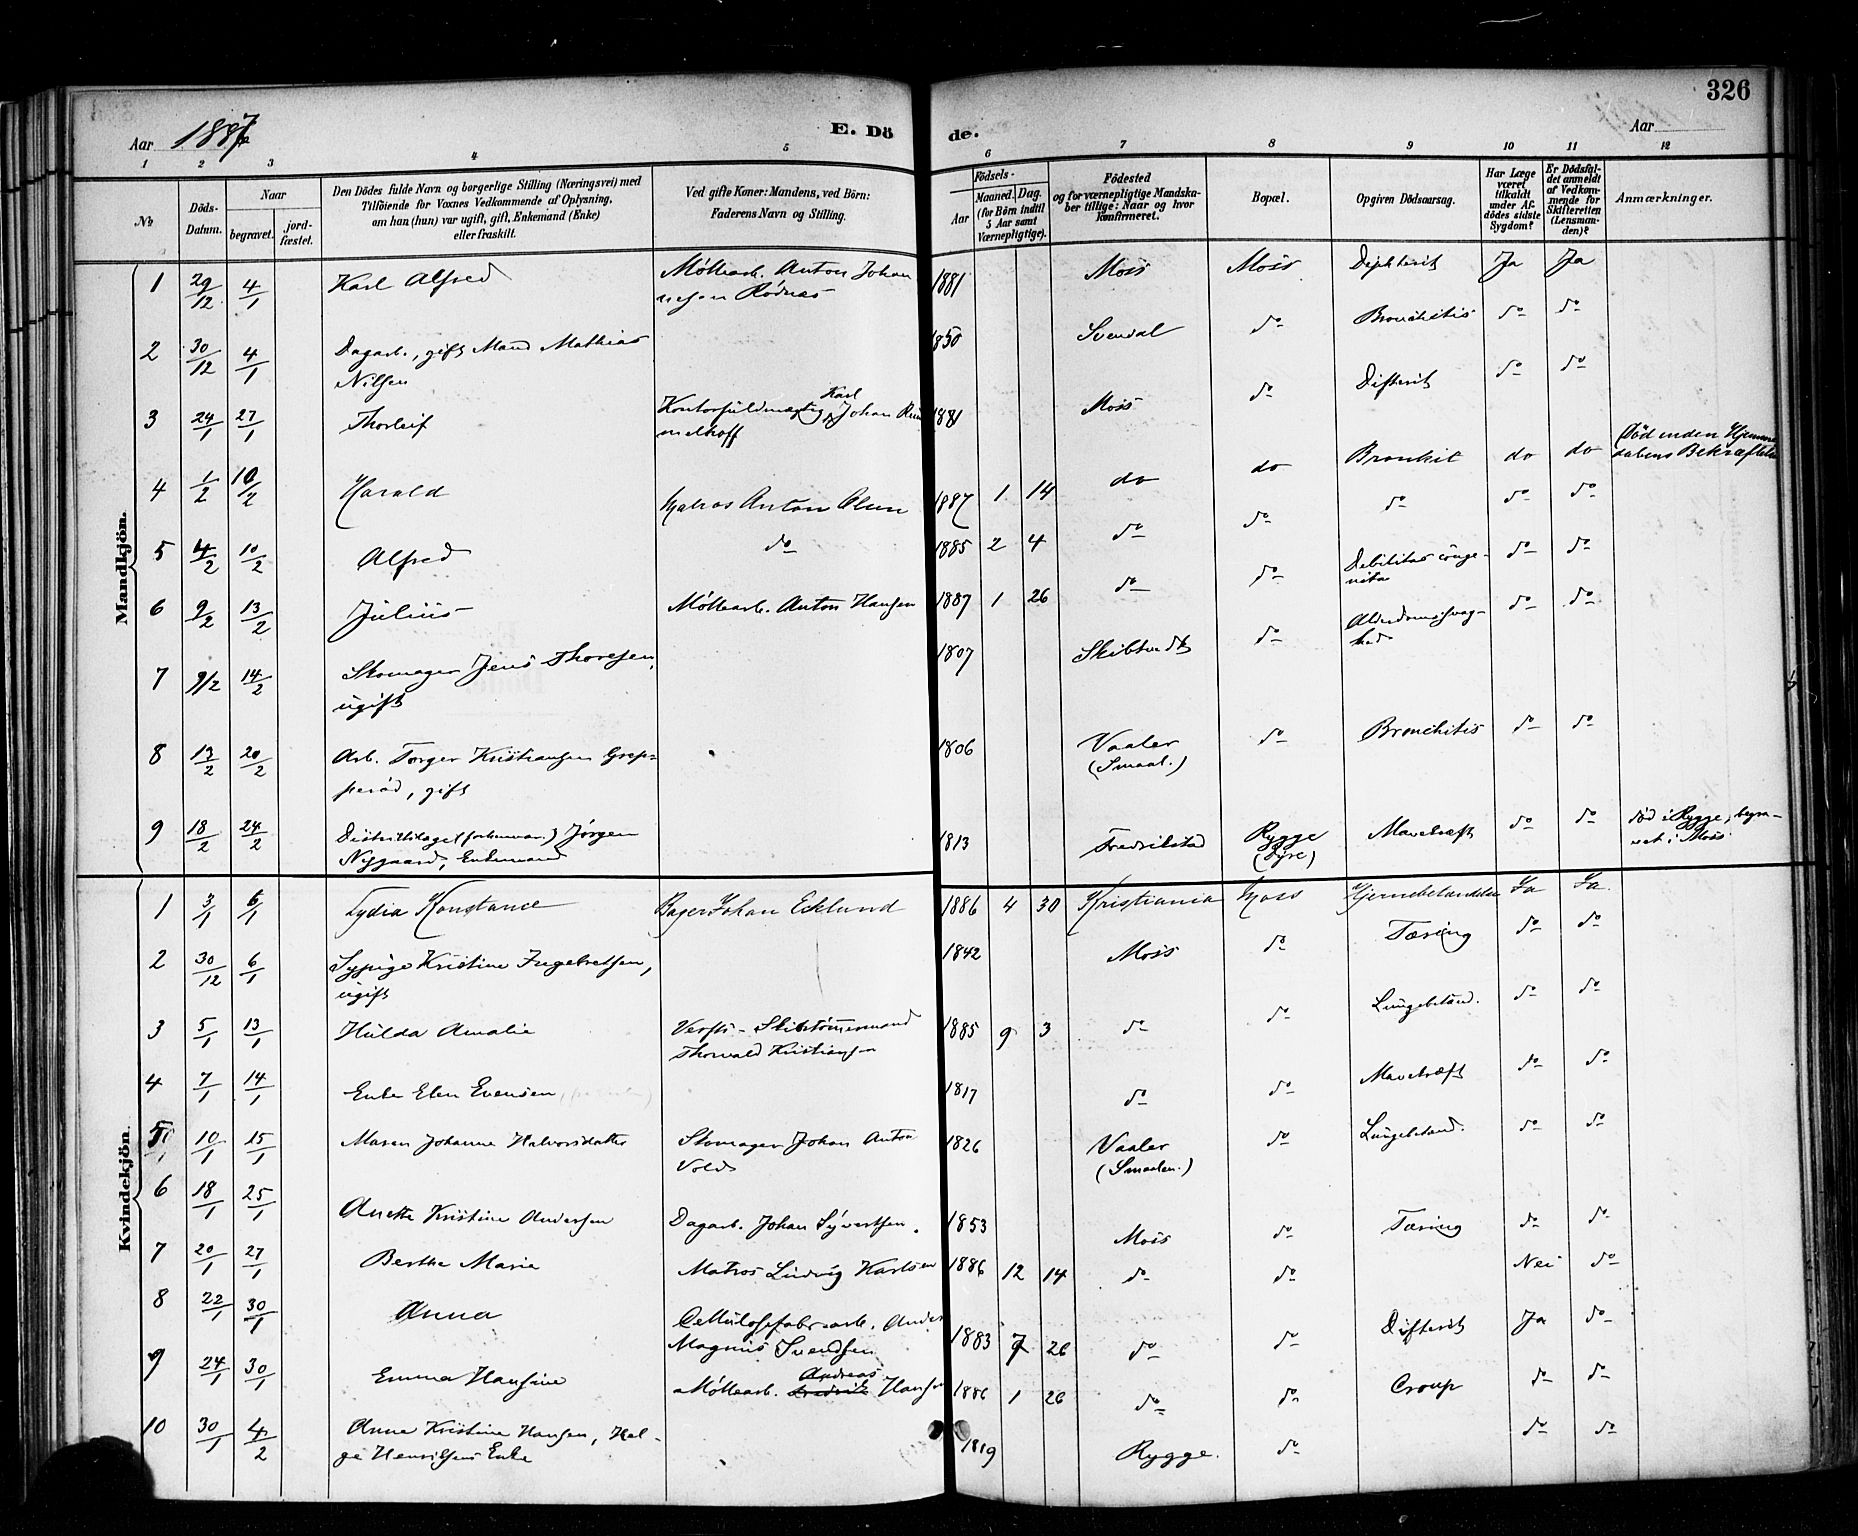 326
Aar 1887 E. Dö de. Aar
1 2 3 4 5 6 7 8 9 10 11 12
No. Döds-Datum. Naar begravet. jord-fæstet. Den Dödes fulde Navn og borgerlige Stilling (Næringsvei) med Tilföiende for Voxnes Vedkommende af Oplysning, om han (hun) var ugift, gift, Enkemand (Enke) eller fraskilt. Ved gifte Koner: Mandens, ved Börn: Faderens Navn og Stilling. Födsels- Aar Maaned. Dag. (for Börn indtil 5 Aar samt Værnepligtige). Födested og for værnepligtige Mandskaber tillige: Naar og hvor Konfirmeret. Bopæl. Opgiven Dödsaarsag. Har Læge været tilkaldt under Afdödes sidste Sygdom? Er Dödsfaldet anmeldt af Vedkommende for Skifteretten (Lensmanden)? Anmærkninger.
Mandkjön.
1 29/12 4/1 Karl Alfred Møllearb. Anton Johan 1881 Moss Moss Diphterit Ja Ja
nesen Rødnes
2 30/12 4/1 Dagarb., gift Mand Mathias 1850 Svendal do Bronchitis do do
Nilsen
3 24/1 27/1 Thorleif Kontorfuldmægtig Karl Johan 1881 Moss do Difterit do do
melhoff
4 1/2 10/2 Harald Matros Anton Olsen 1887 1 14 do do Bronkit do do Død inden Hjemme
dabens Bekræftelse
5 4/2 10/2 Alfred do 1885 2 4 do do do do do
6 9/2 13/2 Julius Møllearb. Anton Hansen 1887 1 26 do do Debilitas conge-
nita do do
7 9/2 14/2 Skomager Jens Thoresen, 1807 Skibtvedt do Alderdomssvag-
hed do do
ugift
8 13/2 20/2 Arb. Torger Kristiansen Grep- 1806 Vaaler do Bronchitis do do
perød, gift (Smaal.)
9 18/2 24/2 Distriktslæge (forhenvær.) Jørgen 1813 Fredrikstad Rygge Mavekræft do do død i Rygge, begra-
Nygaard, Enkemand (Dyre) vet i Moss
Kvindekjön.
1 3/1 6/1 Lydia Konstance Bager Johan Ecklund 1886 4 30 Kristiania Moss Hjernebetændelse Ja Ja.
2 30/12 6/1 Sypige Kristine Ingebretsen, 1842 Moss do Tæring do do
ugift
3 5/1 13/1 Hulda Amalie Verfts-Skibstømmermand 1885 9 3 do do Lungebetænd. do do
Thorvald Kristiansen
4 7/1 14/1 Enke Elen Evensen 1817 do do Mavekræft do do
5 10/1 15/1 Maren Johanne Halvorsdatter Skomager Johan Anton 1826 Vaaler do Lungebetænd. do do
Vold (Smaalen.)
6 18/1 25/1 Anette Kristine Andersen Dagarb. Johan Syvertsen. 1853 Moss do Tæring do do
7 20/1 27/1 Berthe Marie Matros Ludvig Karlsen 1886 12 14 do do Nei do
8 22/1 30/1 Anna Cellulosefabr.arb. Anders 1883 7 26 do do Difterit Ja do
Magnus Svendsen
9 24/1 30/1 Emma Hansine Møllearb. Andreas Hansen 1886 1 26 do do Croup do do
10 30/1 4/2 Anna Kristine Hansen, Hel- 1819 Rygge. do do do
ge Henriksens Enke